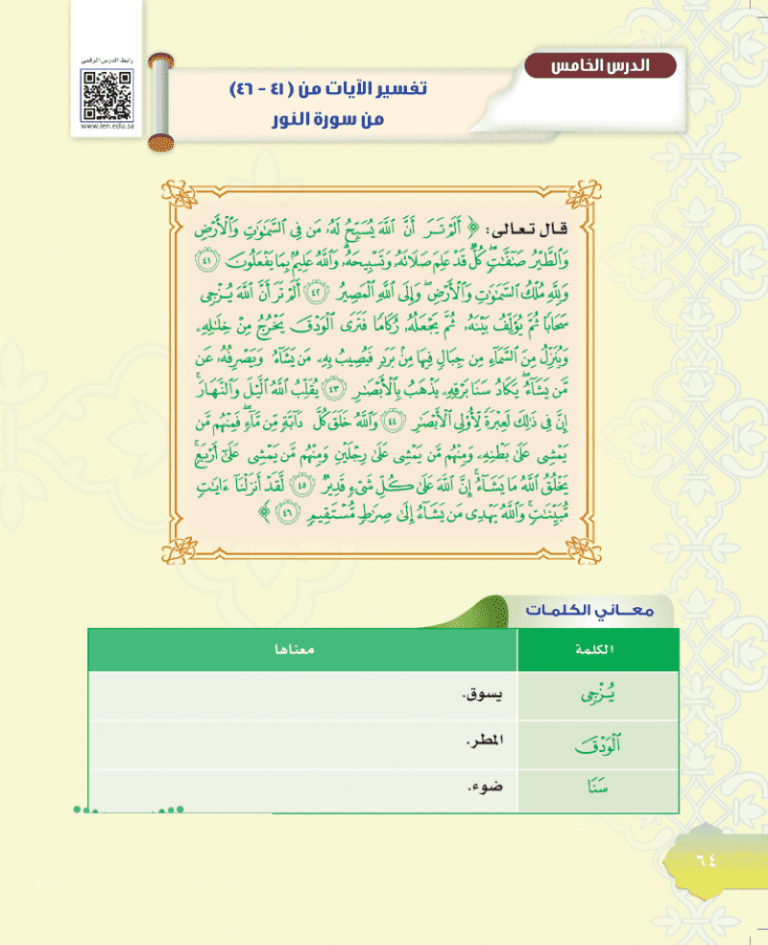 رابط الدرس الرقمي
www.ien.edu.sa
الدرس الخامس
تفسير الآيات من (٤١ - ٤٦)
من سورة النور
قال تعالى: ﴿ أَلَمْ تَرَ أَنَّ ٱللَّهَ يُسَبِّحُ لَهُۥ مَن فِى ٱلسَّمَٰوَٰتِ وَٱلْأَرْضِ
وَٱلطَّيْرُ صَٰٓفَّٰتٍۖ كُلٌّ قَدْ عَلِمَ صَلَاتَهُۥ وَتَسْبِيحَهُۥۗ وَٱللَّهُ عَلِيمٌۢ بِمَا يَفْعَلُونَ ٤١
وَلِلَّهِ مُلْكُ ٱلسَّمَٰوَٰتِ وَٱلْأَرْضِۖ وَإِلَى ٱللَّهِ ٱلْمَصِيرُ ٤٢ أَلَمْ تَرَ أَنَّ ٱللَّهَ يُزْجِى
سَحَابًا ثُمَّ يُؤَلِّفُ بَيْنَهُۥ ثُمَّ يَجْعَلُهُۥ رُكَامًا فَتَرَى ٱلْوَدْقَ يَخْرُجُ مِنْ خِلَٰلِهِۦ
وَيُنَزِّلُ مِنَ ٱلسَّمَآءِ مِن جِبَالٍ فِيهَا مِنۢ بَرَدٍ فَيُصِيبُ بِهِۦ مَن يَشَآءُ وَيَصْرِفُهُۥ عَن
مَّن يَشَآءُۖ يَكَادُ سَنَا بَرْقِهِۦ يَذْهَبُ بِٱلْأَبْصَٰرِ ٤٣ يُقَلِّبُ ٱللَّهُ ٱلَّيْلَ وَٱلنَّهَارَۚ
إِنَّ فِى ذَٰلِكَ لَعِبْرَةً لِّأُو۟لِى ٱلْأَبْصَٰرِ ٤٤ وَٱللَّهُ خَلَقَ كُلَّ دَآبَّةٍ مِّن مَّآءٍۖ فَمِنْهُم مَّن
يَمْشِى عَلَىٰ بَطْنِهِۦ وَمِنْهُم مَّن يَمْشِى عَلَىٰ رِجْلَيْنِ وَمِنْهُم مَّن يَمْشِى عَلَىٰٓ أَرْبَعٍۚ
يَخْلُقُ ٱللَّهُ مَا يَشَآءُۚ إِنَّ ٱللَّهَ عَلَىٰ كُلِّ شَىْءٍ قَدِيرٌ ٤٥ لَّقَدْ أَنزَلْنَآ ءَايَٰتٍ
مُّبَيِّنَٰتٍۚ وَٱللَّهُ يَهْدِى مَن يَشَآءُ إِلَىٰ صِرَٰطٍ مُّسْتَقِيمٍ ٤٦ ﴾
معـــاني الكلمـات
الكلمة معناها
يُزْجِى يسوق.
ٱلْوَدْقَ المطر.
سَنَا ضوء.
٦٤